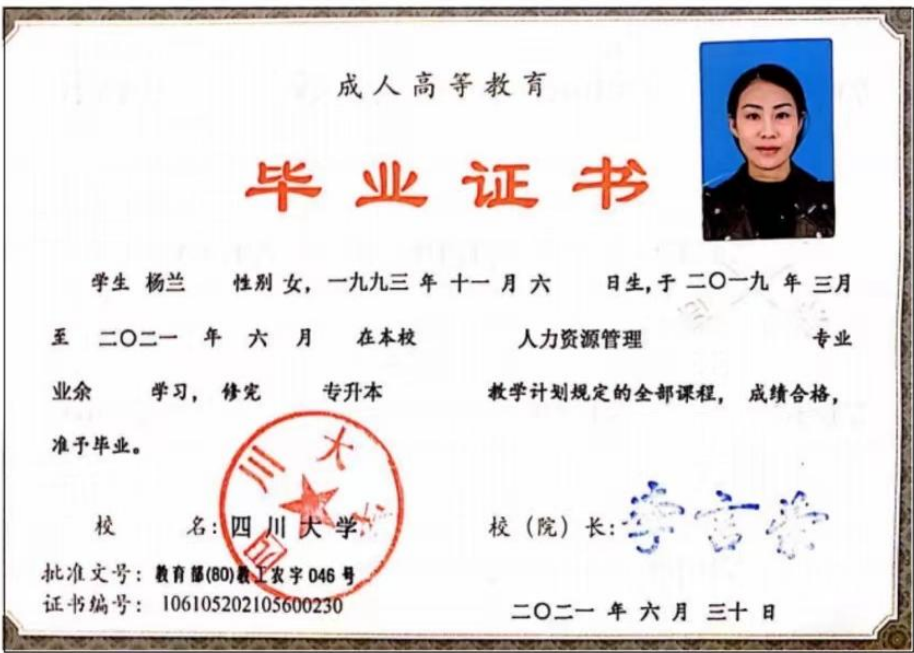 成人高等教育
毕业证书
学生 杨兰 性别 女，一九九三 年 十一 月 六 日生，于 二〇一九 年 三月
至 二〇二一 年 六 月 在本校 人力资源管理 专业
业余 学习，修完 专升本 教学计划规定的全部课程，成绩合格，
准予毕业。
四川大学
校 名：四川大学 校（院）长：李言荣
批准文号：教育部(80)教工农字 046 号
证书编号：106105202105600230
二〇二一 年 六 月 三十 日